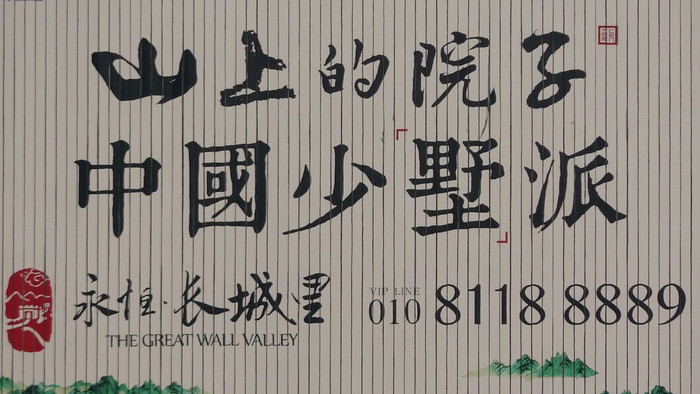 山上的院子
中國少「墅」派
永恒·长城里
THE GREAT WALL VALLEY
VIP LINE
010 8118 8889